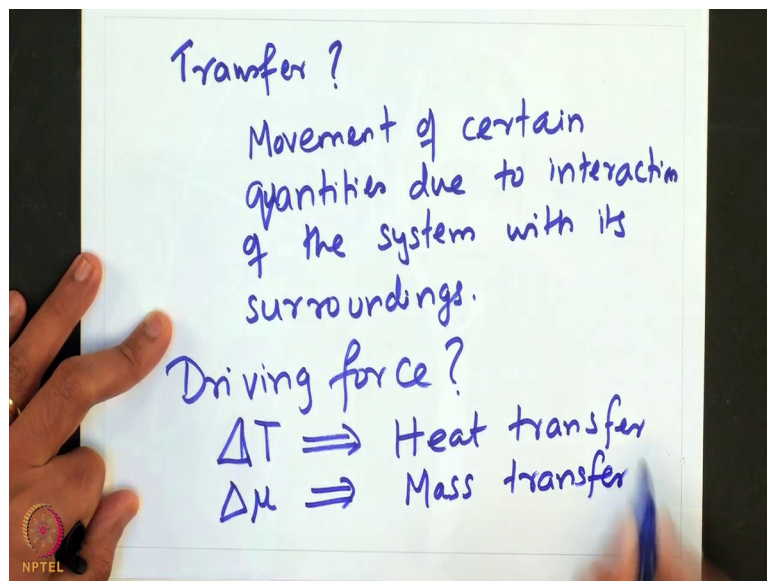 Transfer?
Movement of certain
quantities due to interaction
of the system with its
surroundings.
Driving force?
ΔT ⟹ Heat transfer
Δμ ⟹ Mass transfer
NPTEL